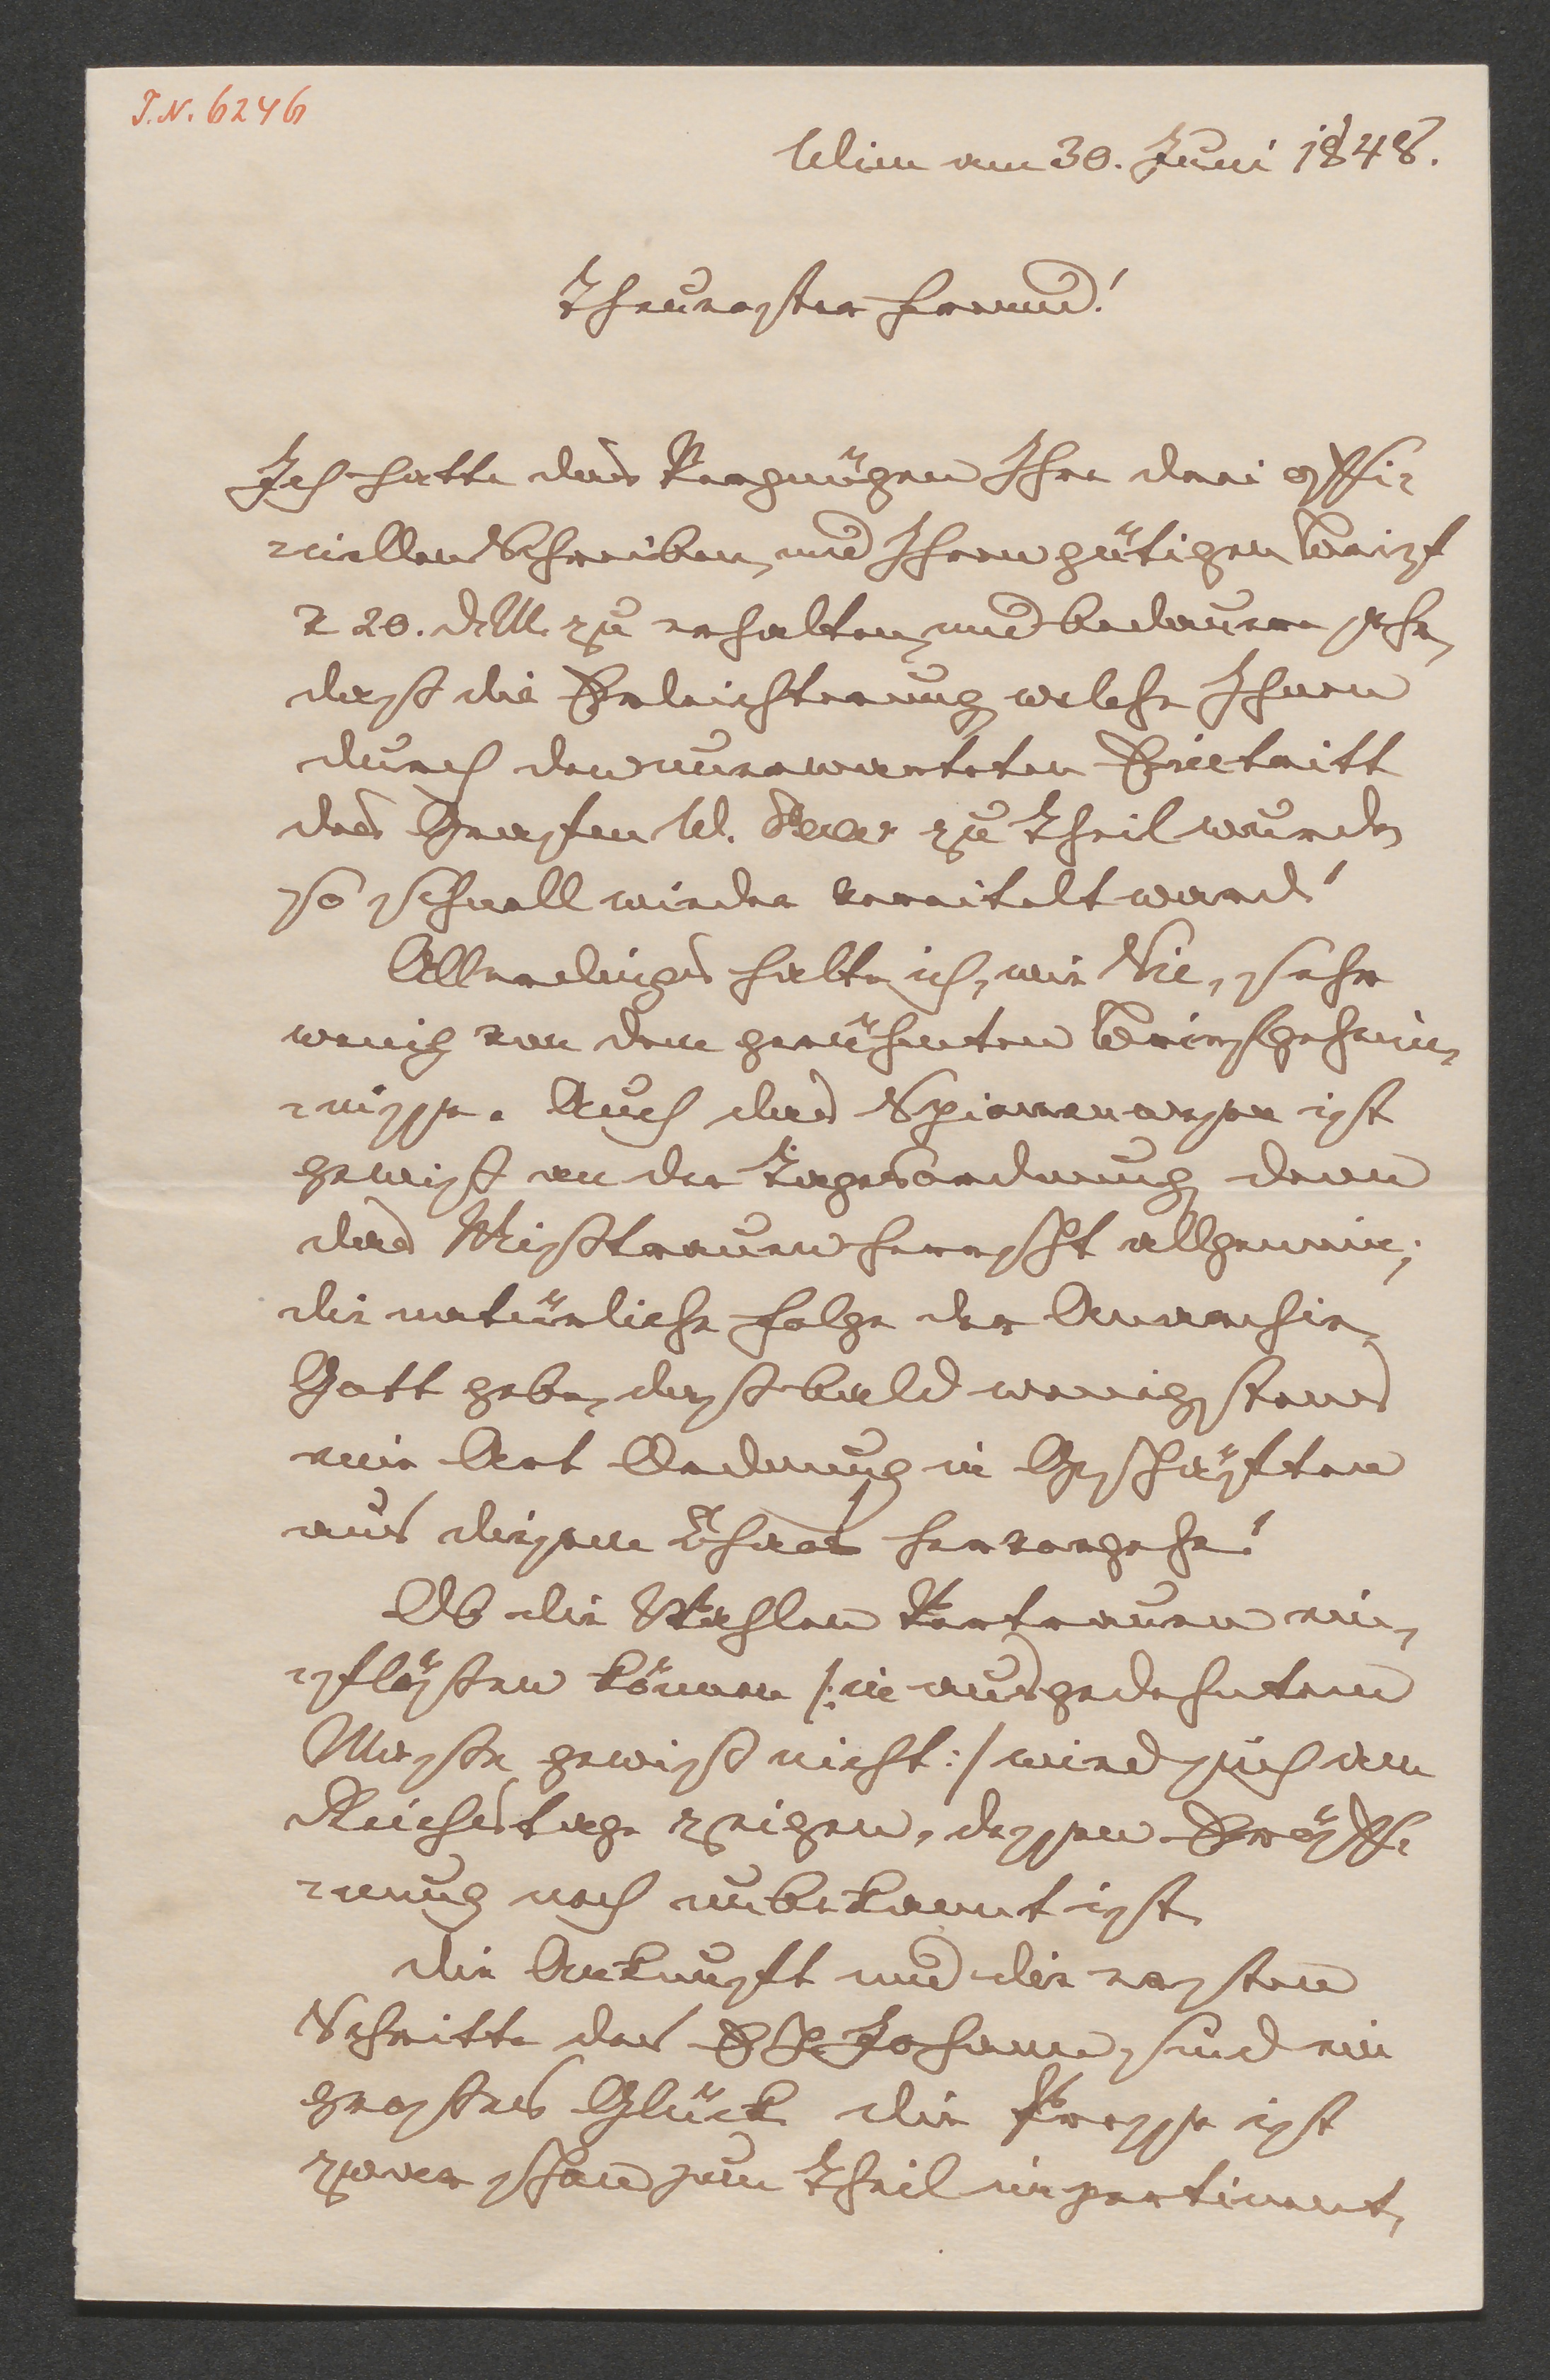 I.N. 6246
Wien am 30. Juni 1848.
Theurester Freund!
Ich hatte das Vergnügen Ihre drei offi-
ziellen Schreiben, und Ihren gütigen Brief
v 20. d. M. zu erhalten, und bedaure sehr,
daß die Erleichterung welche Ihnen
durch den unerwarteten Eintritt
des Grafen W. zu Theil wurde,
so schnell wieder vereitelt ward!
Allerdings halte ich, wie Sie, sehr
wenig von dem gerühmten Briefgeheim-
nisse. Auch das Spionenwesen ist
gewiß an der Tagesordnung denn
das Mißtrauen herrscht allgemein;
die natürliche Folge der Anarchie,
Gott gebe, daß bald wenigstens
eine Art Ordnung in Geschäften
aus diesem Chaos hervorgehe!
Ob die Wahlen Vertrauen ein-
flößen können /: in ausgedehntem
Maße gewiß nicht :/ wird sich am
Reichstage zeigen, dessen Eröff-
nung noch unbekannt ist.
Die Ankunft und die ersten
Schritte des EH. Johann, sind ein
großes Glück die Presse ist
zwar schon zum Theil impertinent,